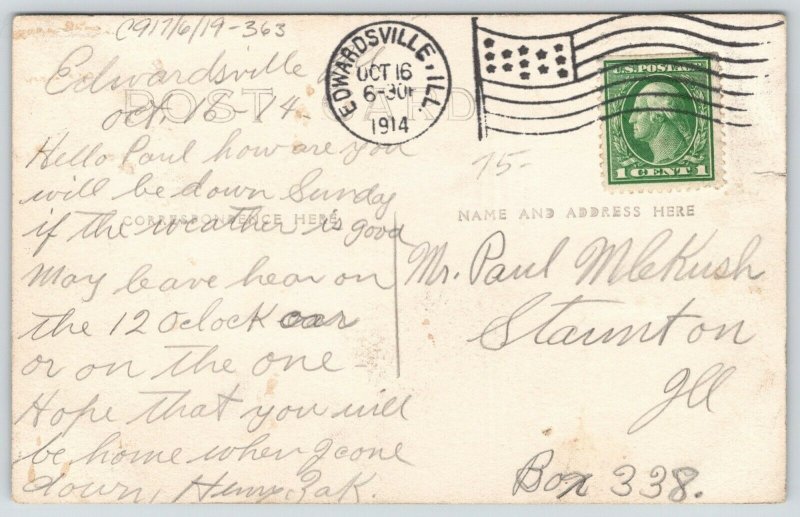 C917/6/19-363
Edwardsville Ill.
Oct. 16-14.
POST CARD
EDWARDSVILLE, ILL.
OCT 16
6-30P
1914
U.S. POSTAGE
1 CENT 1
75-
CORRESPONDENCE HERE
NAME AND ADDRESS HERE
Hello Paul how are you
will be down Sunday
if the weather is good
May leave hear on
the 12 Oclock car
or on the one
Hope that you will
be home when I come
down, Henry Zak.
Mr. Paul
Staunton
Ill
Box 338.